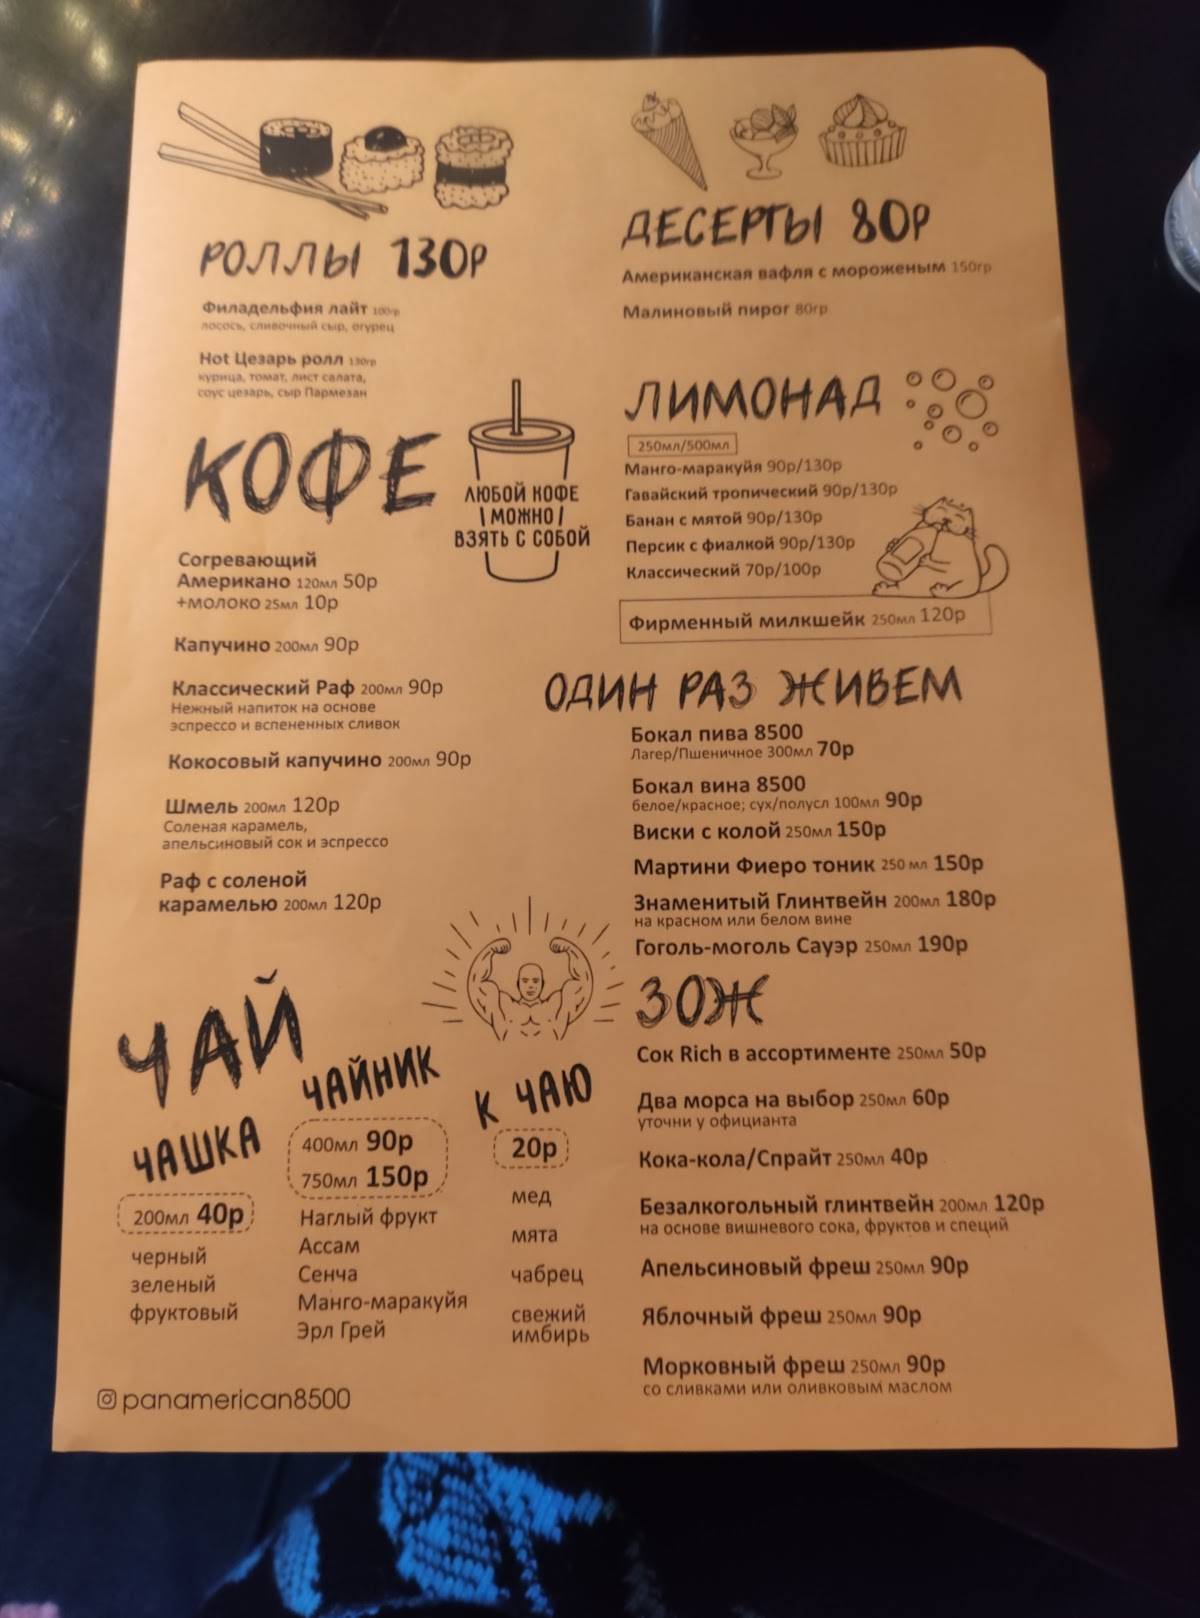 РОЛЛЫ 130Р
Филадельфия лайт 100гр
лосось, сливочный сыр, огурец
Hot Цезарь ролл 130гр
курица, томат, лист салата,
соус цезарь, сыр Пармезан
КОФЕ
ЛЮБОЙ КОФЕ
МОЖНО
ВЗЯТЬ С СОБОЙ
Согревающий
Американо 120мл 50р
+молоко 25мл 10р
Капучино 200мл 90р
Классический Раф 200мл 90р
Нежный напиток на основе
эспрессо и вспененных сливок
Кокосовый капучино 200мл 90р
Шмель 200мл 120р
Соленая карамель,
апельсиновый сок и эспрессо
Раф с соленой
карамелью 200мл 120р
ЧАЙ
ЧАШКА
200мл 40р
черный
зеленый
фруктовый
ЧАЙНИК
400мл 90р
750мл 150р
Наглый фрукт
Ассам
Сенча
Манго-маракуйя
Эрл Грей
К ЧАЮ
20р
мед
мята
чабрец
свежий
имбирь
panamerican8500
ДЕСЕРТЫ 80Р
Американская вафля с мороженым 150гр
Малиновый пирог 80гр
ЛИМОНАД
250мл/500мл
Манго-маракуйя 90р/130р
Гавайский тропический 90р/130р
Банан с мятой 90р/130р
Персик с фиалкой 90р/130р
Классический 70р/100р
Фирменный милкшейк 250мл 120р
ОДИН РАЗ ЖИВЕМ
Бокал пива 8500
Лагер/Пшеничное 300мл 70р
Бокал вина 8500
белое/красное; сух/полусл 100мл 90р
Виски с колой 250мл 150р
Мартини Фиеро тоник 250 мл 150р
Знаменитый Глинтвейн 200мл 180р
на красном или белом вине
Гоголь-моголь Сауэр 250мл 190р
ЗОЖ
Сок Rich в ассортименте 250мл 50р
Два морса на выбор 250мл 60р
уточни у официанта
Кока-кола/Спрайт 250мл 40р
Безалкогольный глинтвейн 200мл 120р
на основе вишневого сока, фруктов и специй
Апельсиновый фреш 250мл 90р
Яблочный фреш 250мл 90р
Морковный фреш 250мл 90р
со сливками или оливковым маслом